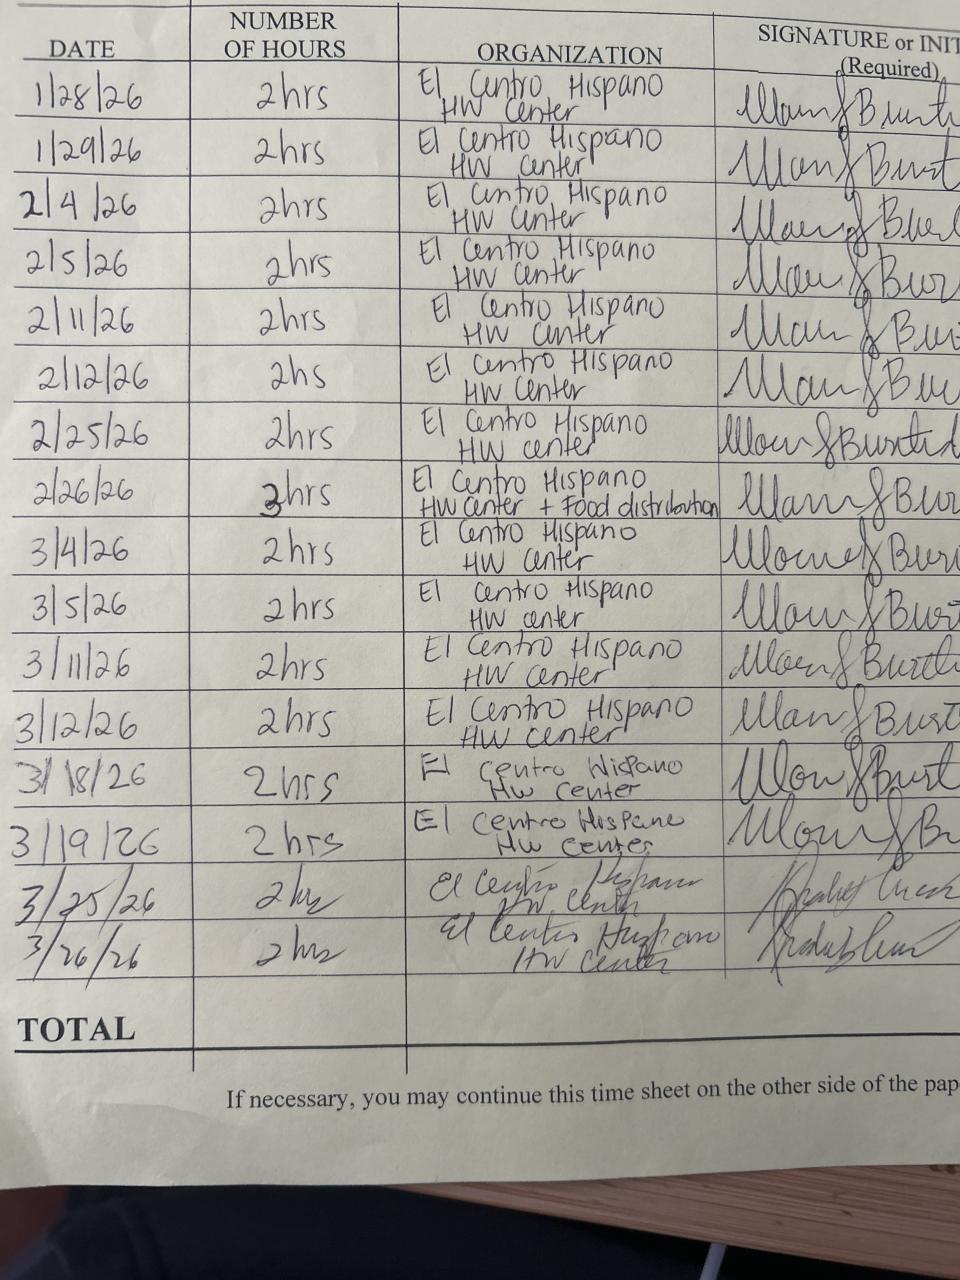 DATE NUMBER OF HOURS ORGANIZATION SIGNATURE or INIT
(Required)
1/28/26 2hrs El Centro Hispano
HW Center
1/29/26 2hrs El Centro Hispano
HW Center
2/4/26 2hrs El Centro Hispano
HW Center
2/5/26 2hrs El Centro Hispano
HW Center
2/11/26 2hrs El Centro Hispano
HW Center
2/12/26 2hs El Centro Hispano
HW Center
2/25/26 2hrs El Centro Hispano
HW center
2/26/26 3hrs El Centro Hispano
HW Center + Food distribution
3/4/26 2hrs El Centro Hispano
HW Center
3/5/26 2hrs El Centro Hispano
HW center
3/11/26 2hrs El Centro Hispano
HW Center
3/12/26 2hrs El Centro Hispano
HW center
3/18/26 2hrs El Centro Hispano
HW center
3/19/26 2hrs El Centro Hispano
HW center
3/25/26 2hrs El Centro Hispano
HW Center
3/26/26 2hrs El Centro Hispano
HW Center
TOTAL
If necessary, you may continue this time sheet on the other side of the pap